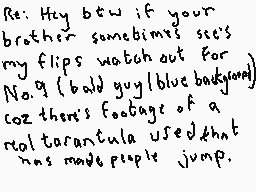 Re: Hey btw if your
brother sometimes see's
my flips watch out for
No.9 (bald guy/blue background)
coz there's footage of a
real tarantula used that
has made people jump.